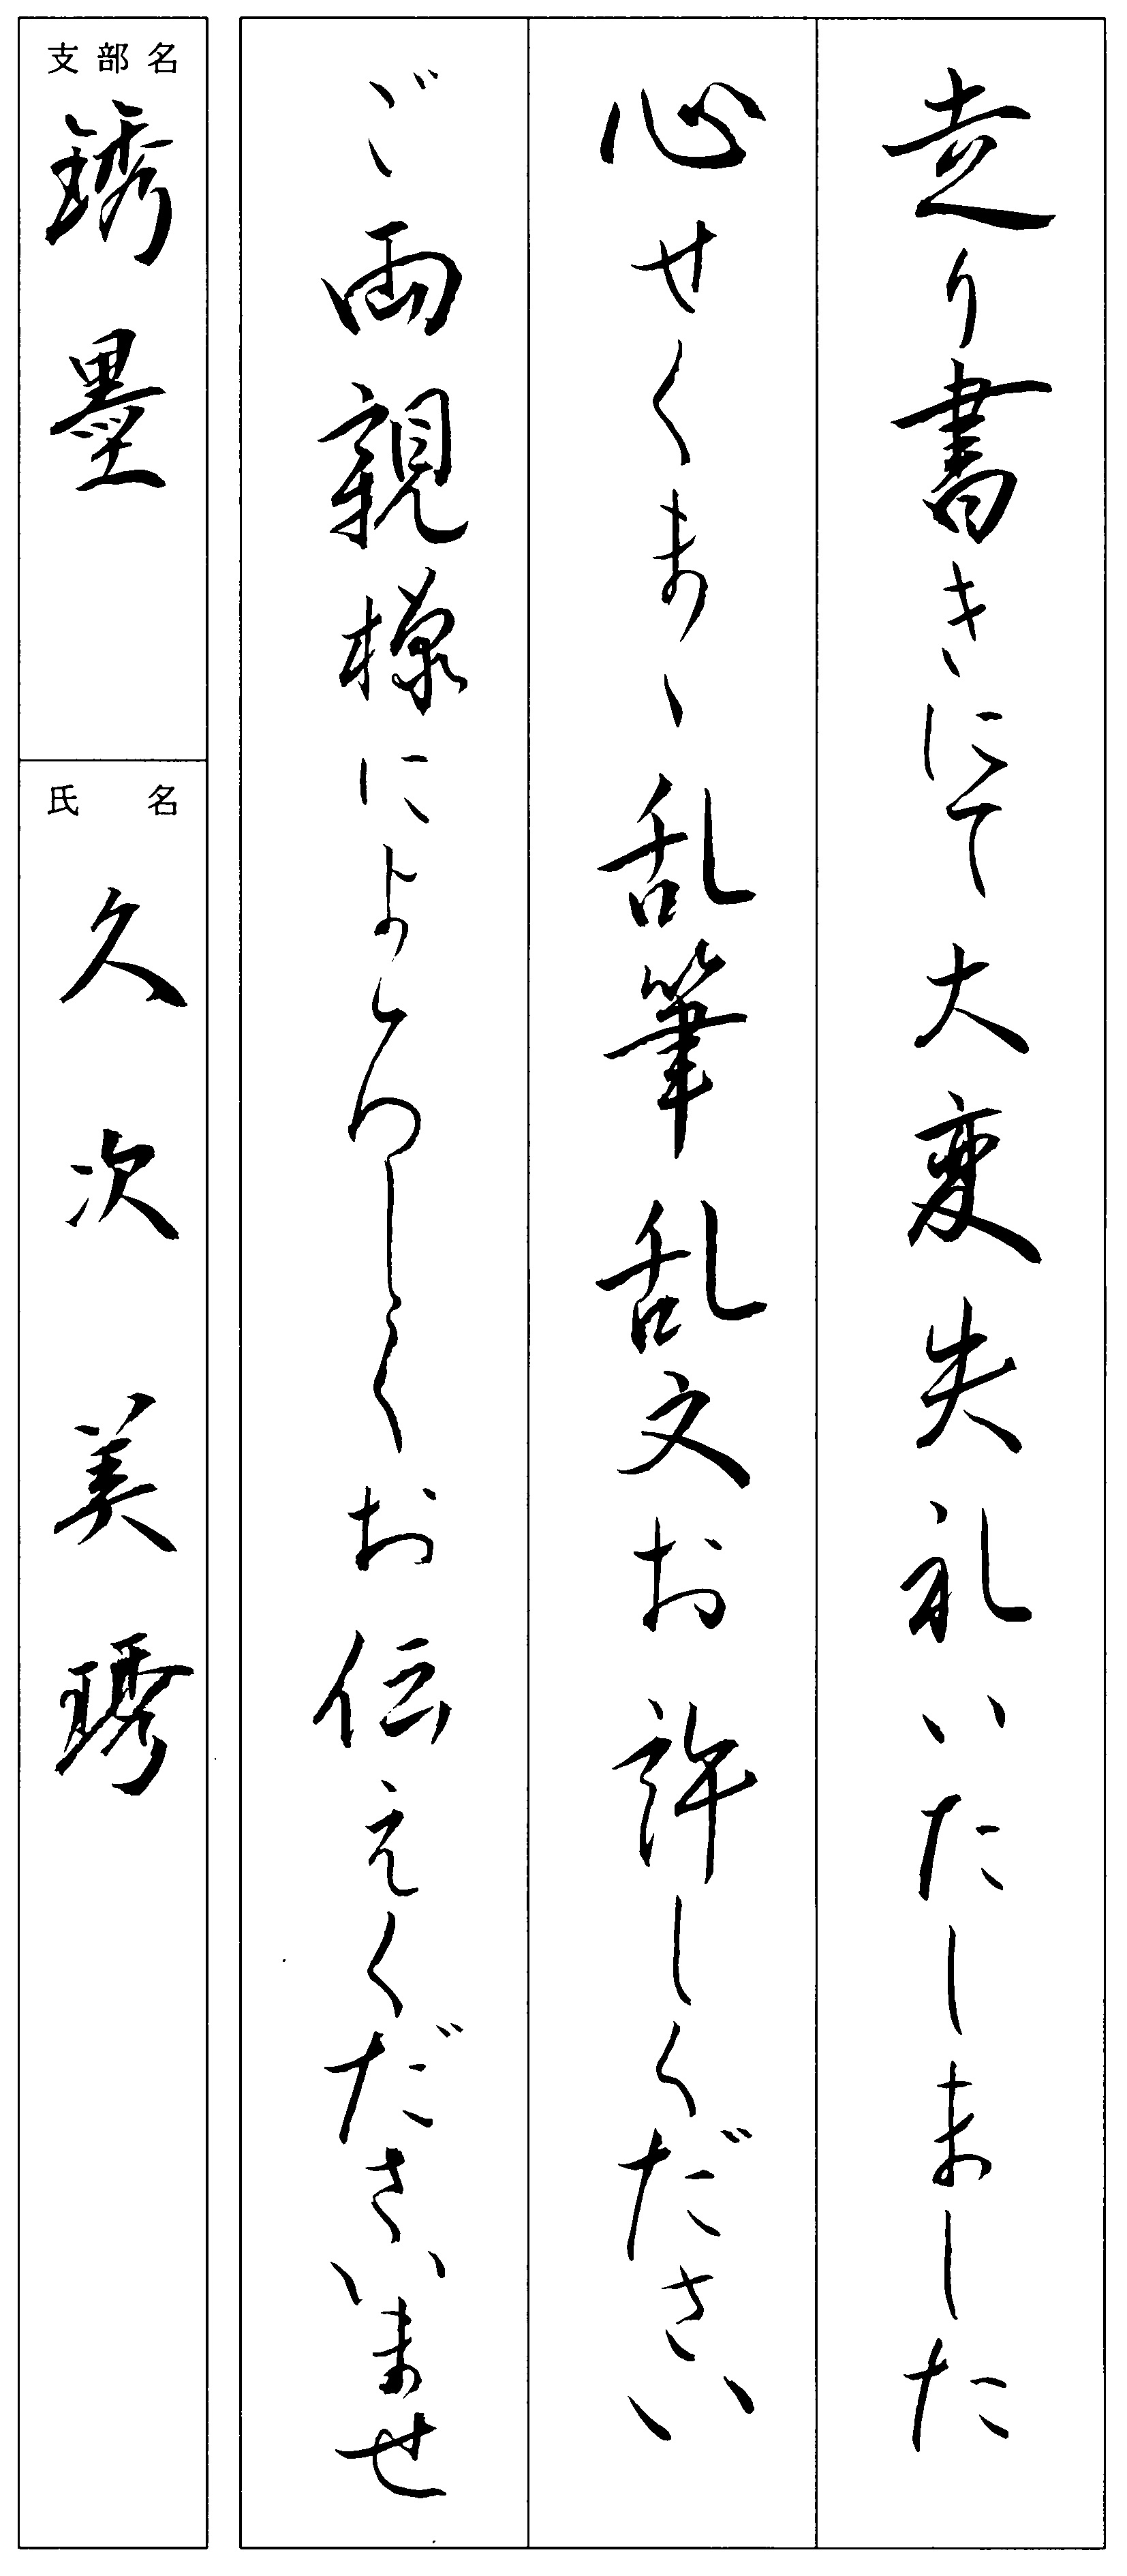 走り書きにて大変失礼いたしました
心せくまゝ乱筆乱文お許しください
ご両親様によろしくお伝えくださいませ
支部名
銹墨
氏名
久次美琇